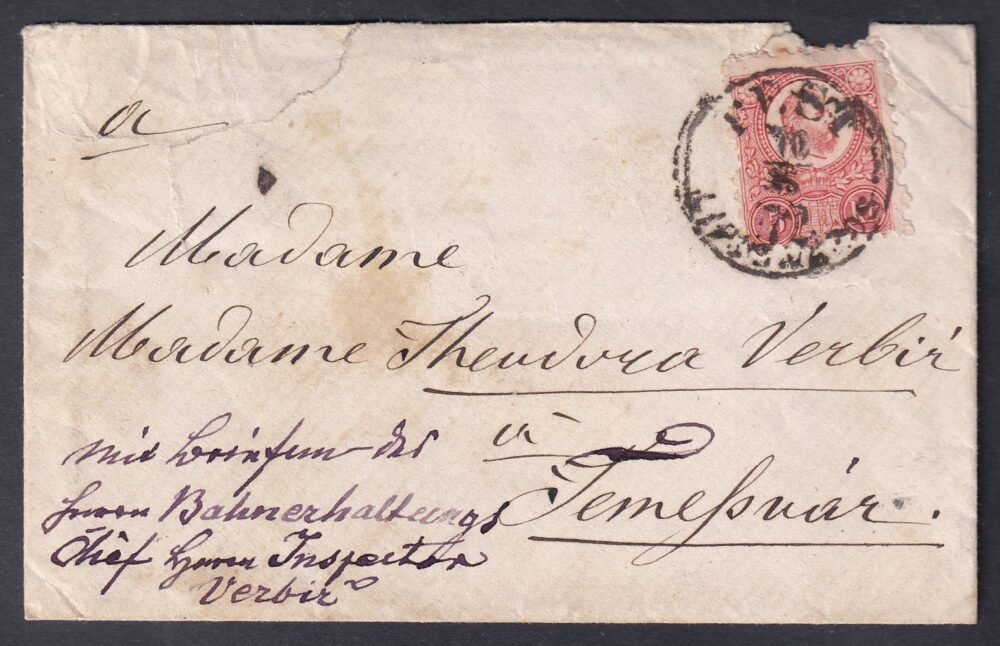 a
PEST
10
72
Madame
Madame Theodora Verbir
à
Temeßvár.
mit Briefen des
Herrn Bahnerhaltungs
Chef Herrn Inspector
Verbir